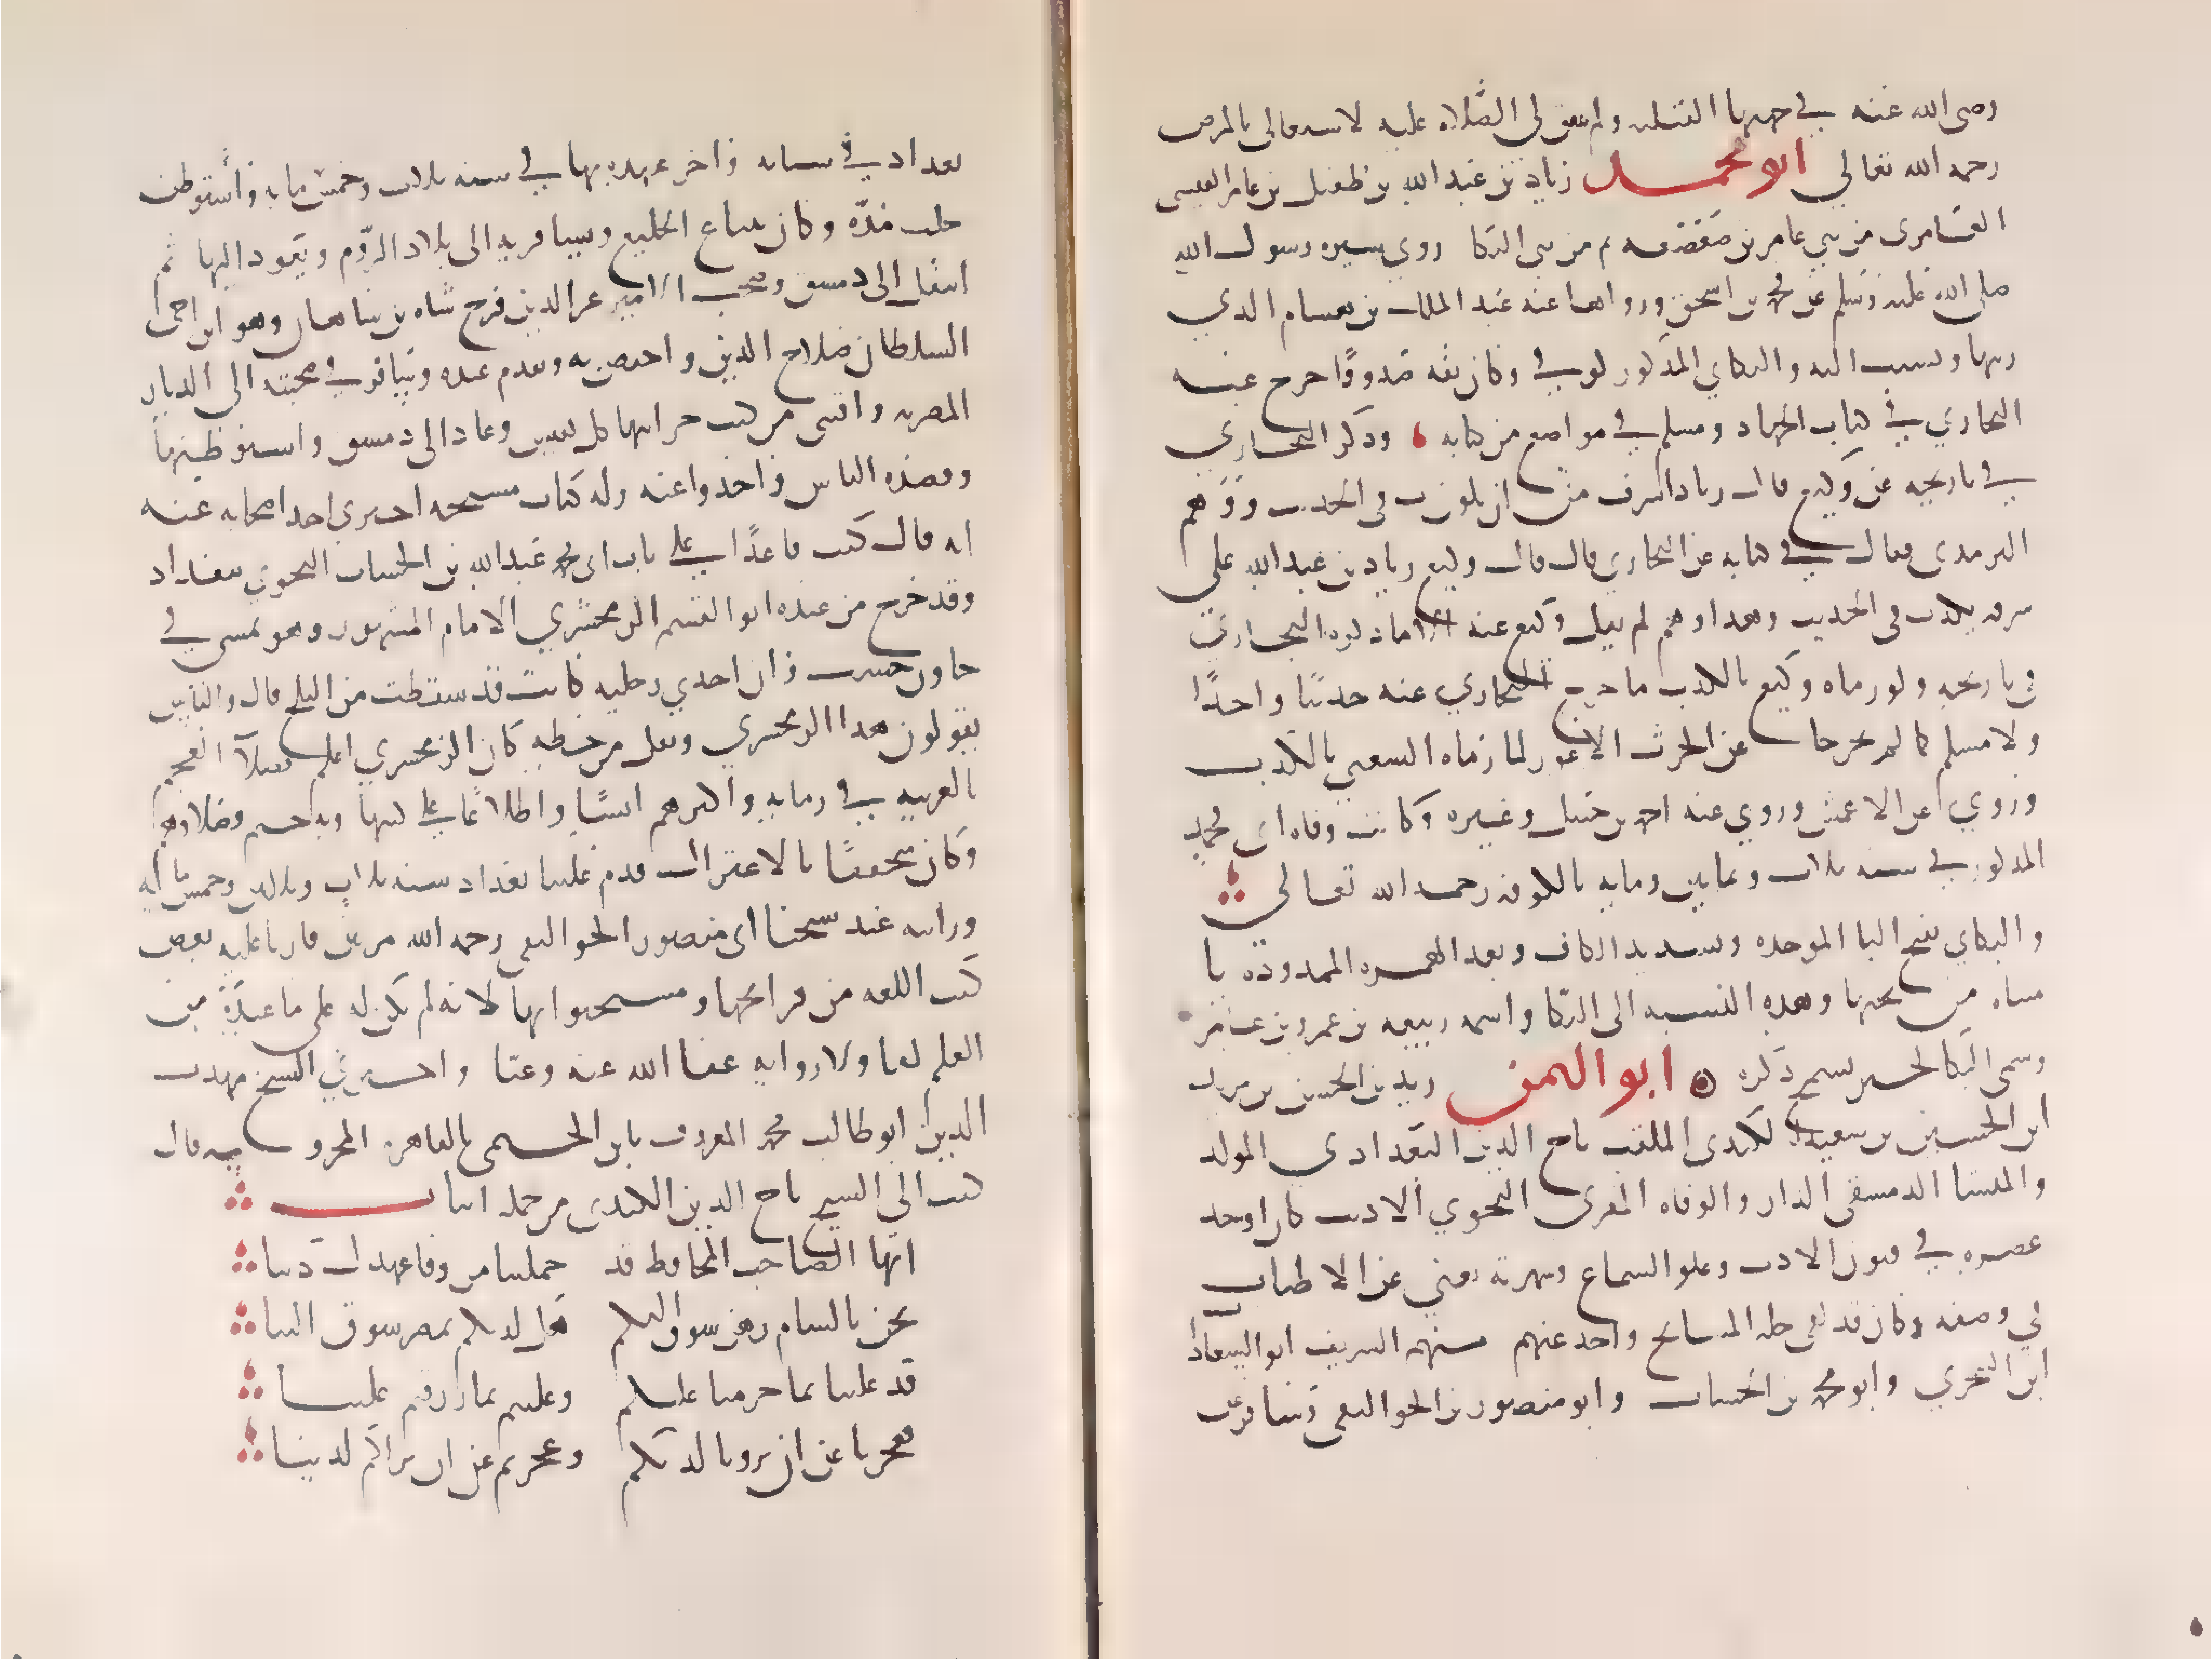 رضي الله عنه في جهتها القبليه ولم يتول الصلاه عليه لاشتغالي بالمرض
رحمه الله تعالى ابو محمد زياد بن عبد الله بن طفيل بن عامر القيسي
العامري من بني عامر بن صعصعه ثم من بني البكا روى سيره رسول الله
صلى الله عليه وسلم عن محمد بن اسحق ورواها عنه عبد الملك بن هشام الذي
رتبها ونسبت اليه والبكاي المذكور كوفي وكان ثقه صدوقا خرج عنه
البخاري في كتاب الجهاد ومسلم في مواضع من كتابه وذكر البخاري
في تاريخه عن وكيع قال زياد اشرف من ان يكذب في الحديث ووهم
الترمذي فقال في كتابه عن البخاري قال قال وكيع زياد بن عبد الله على
شرفه يكذب في الحديث وهذا وهم لم يقل وكيع عنه الا ما ذكره البخاري
في تاريخه ولو رماه وكيع بالكذب ما خرج البخاري عنه حديثا واحدا
ولا مسلم كما لم يخرجا عن الحرث الاعور لما رماه الشعبي بالكذب
وروى عن الاعمش وروى عنه احمد بن حنبل وغيره وكانت وفاه ابي محمد
المذكور في سنه ثلاث وثمانين ومايه بالكوفه رحمه الله تعالى
والبكاي بفتح البا الموحده وتشديد الكاف وبعد الهمزه الممدوده يا
مثناه من تحتها وهذه النسبه الى البكا واسمه ربيعه بن عمرو بن عامر
وسمي البكا لخبر يسمج ذكره ابو اليمن زيد بن الحسن بن زيد
ابن الحسين بن سعيد الكندي الملقب تاج الدين البغدادي المولد
والمنشا الدمشقي الدار والوفاه المقرى النحوي الاديب كان اوحد
عصره في فنون الاداب وعلو السماع وشهرته تغني عن الاطناب
في وصفه وكان قد لقي جله المشايخ واخذ عنهم منهم الشريف ابو السعادا
ابن الشجري وابو محمد بن الخشاب وابو منصور بن الجواليقي وسافر عن
بغداد في شبابه واخر عهده بها في سنه ثلاث وخمس مايه واستوطن
حلب مده وكان يبتاع الخليع ويسافر به الى بلاد الروم ويعود اليها ثم
انتقل الى دمشق وصحب الامير عز الدين فرخ شاه بن شاهان شاه وهو ابن اخي
السلطان صلاح الدين واختص به وتقدم عنده وسافر في صحبته الى الديار
المصريه واقتنى من كتب خزاينها كل نفيس وعاد الى دمشق واستوطنها
وقصده الناس واخذوا عنه وله كتاب مشيخه اخبرني احد اصحابه عنه
انه قال كنت قاعدا على باب ابي محمد عبد الله بن الخشاب النحوي ببغداد
وقد خرج من عنده ابو القسم الزمخشري الامام المشهور وهو يمشي في
جاون خشب لان احدى رجليه كانت قد سقطت من الثلج قال والناس
يقولون هذا الزمخشري ونقل من خطه كان الزمخشري اعلم فضلا العجم
بالعربيه في زمانه واكثرهم اكتسابا واطلاعا على كتبها وبه ختم فضلاوهم
وكان متحققا بالاعتزال قدم علينا بغداد سنه ثلاث وثلثين وخمس مايه
ورايته عند شيخنا ابي منصور الجواليقي رحمه الله مرتين قاريا عليه بعض
كتب اللغه من فواتحها ومستجيزا لها لانه لم يكن له على ما عنده من
العلم لقا ولا روايه عفا الله عنه وعنا واخبرني الشيخ مهذب
الدين ابو طالب محمد المعروف بابن الخيمي بالقاهره المحروسه قال
كتب الي الشيخ تاج الدين الكندي من جمله ابيات
ايها الصاحب المحافظ قد حملتنا من وفا عهدك دينا
نحن بالشام رهن شوق اليكم هل لديكم بمصر شوق الينا
قد غلبنا بما حرمنا عليكم وغلبتم بما رزقتم علينا
فعجزنا عن ان ترونا لديكم وعجزتم عن ان نراكم لدينا